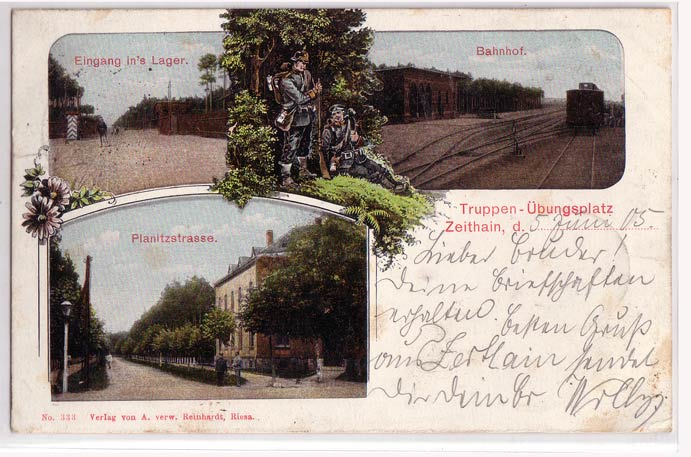 Eingang in's Lager.
Bahnhof.
Truppen-Übungsplatz
Zeithain, d. 5. Juni 05.
Planitzstrasse.
Lieber Bruder!
Deine Briefschaften
erhalten. besten Gruß
aus Zeithain sendet
Dir dein Br. Willy
No. 333 Verlag von A. verw. Reinhardt, Riesa.